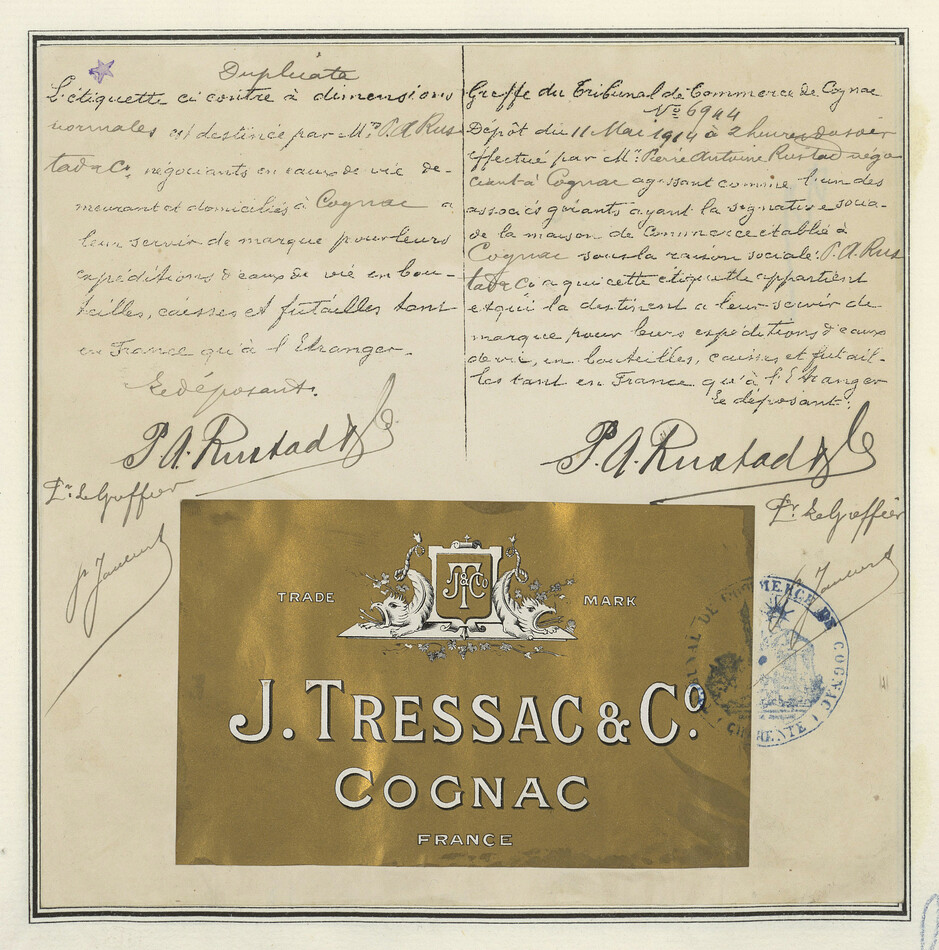 Duplicata
L'étiquette ci contre à dimensions
normales est destinée par Mrs P. A Rus
tad & Co. négociants en eaux de vie de-
meurant et domiciliés à Cognac a
leur servir de marque pour leurs
expéditions d'eaux de vie en bou-
teilles, caisses et futailles tant
en France qu'à l'Etranger.
Le déposant.
P. A. Rustad & Co
Pr. Le Greffier
Greffe du Tribunal de Commerce de Cognac
No 6944
Dépôt du 11 Mai 1914 à 2 heures du soir
effectué par Mr. Pierre Antoine Rustad négo
ciant à Cognac agissant comme l'un des
associés gérants ayant la signature socia-
de la maison de Commerce établie à
Cognac sous la raison sociale: P. A. Rus
tad & Co a qui cette étiquette appartient
et qui la destinent a leur servir de
marque pour leurs expéditions d'eaux
de vie, en bouteilles, caisses et futail-
les tant en France qu'à l'Etranger
Le déposant:
P. A. Rustad & Co
Pr. Le Greffier
TRADE MARK
J.T&Co
J. TRESSAC & Co.
COGNAC
FRANCE
TRIBUNAL DE COMMERCE DE COGNAC
(CHARENTE)